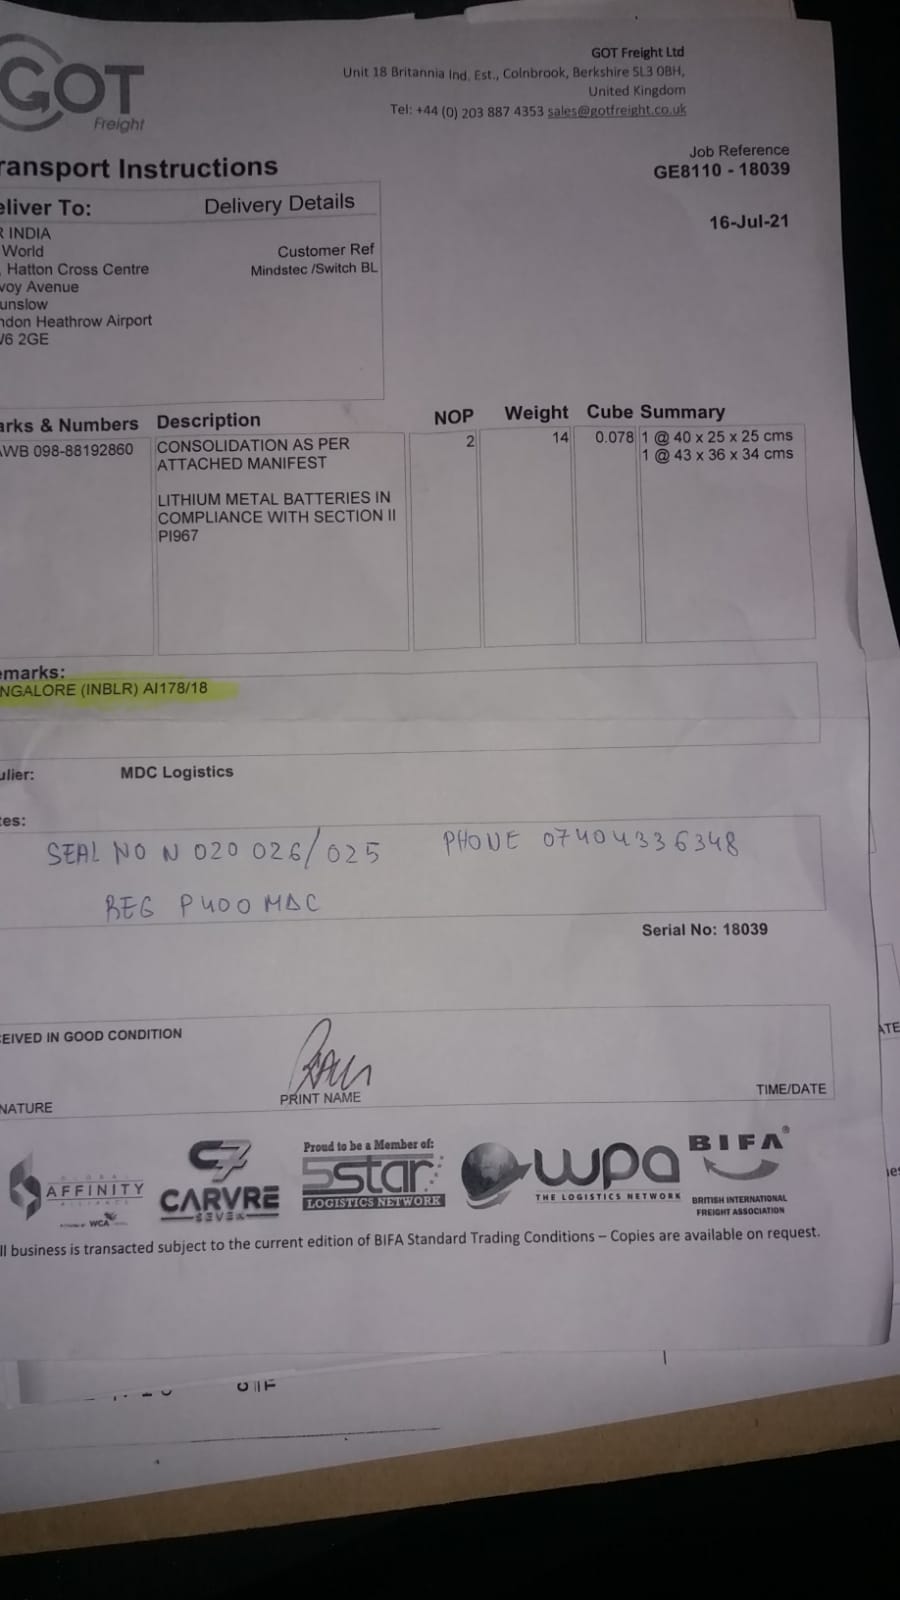 GOT
Freight
GOT Freight Ltd
Unit 18 Britannia Ind. Est., Colnbrook, Berkshire SL3 0BH,
United Kingdom
Tel: +44 (0) 203 887 4353 sales@gotfreight.co.uk
ransport Instructions
Job Reference
GE8110 - 18039
16-Jul-21
eliver To:
Delivery Details
R INDIA
World
, Hatton Cross Centre
voy Avenue
unslow
ndon Heathrow Airport
V6 2GE
Customer Ref
Mindstec /Switch BL
arks & Numbers Description NOP Weight Cube Summary
AWB 098-88192860 CONSOLIDATION AS PER 2 14 0.078 1 @ 40 x 25 x 25 cms
ATTACHED MANIFEST 1 @ 43 x 36 x 34 cms
LITHIUM METAL BATTERIES IN
COMPLIANCE WITH SECTION II
PI967
emarks:
NGALORE (INBLR) AI178/18
ulier: MDC Logistics
tes:
SEAL NO N 020 026/025 PHONE 07404336348
REG P400 MDC
Serial No: 18039
EIVED IN GOOD CONDITION
NATURE
PRINT NAME
TIME/DATE
GLOBAL
AFFINITY
WCA
C7
CARVRE
SEVEN
Proud to be a Member of:
5star
LOGISTICS NETWORK
wpa
THE LOGISTICS NETWORK
BIFA®
BRITISH INTERNATIONAL
FREIGHT ASSOCIATION
ll business is transacted subject to the current edition of BIFA Standard Trading Conditions – Copies are available on request.